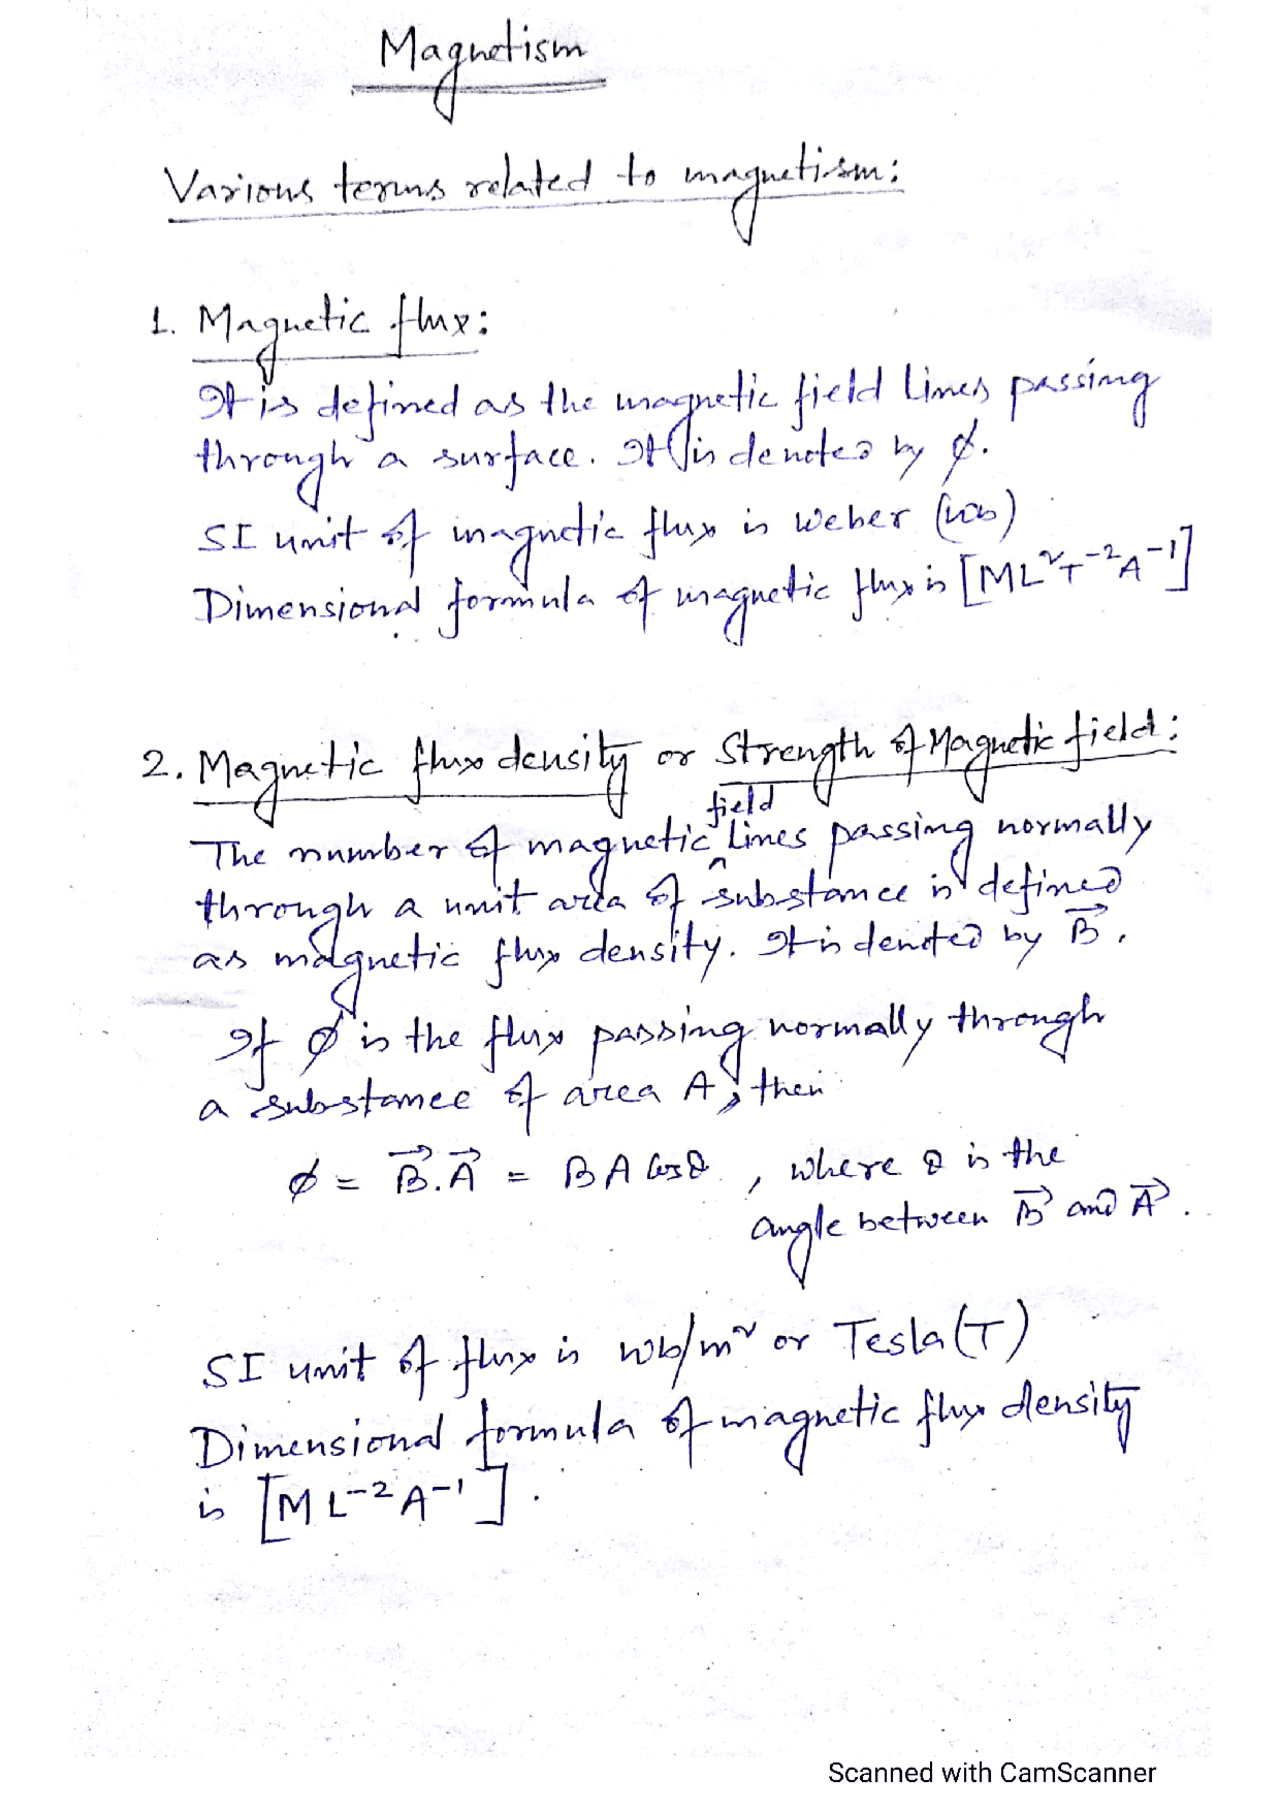 Magnetism
Various terms related to magnetism:
1. Magnetic flux:
It is defined as the magnetic field lines passing
through a surface. It is denoted by ϕ.
SI unit of magnetic flux is Weber (wb)
Dimensional formula of magnetic flux is [ML²T⁻²A⁻¹]
2. Magnetic flux density or Strength of Magnetic field:
field
The number of magnetic ^ lines passing normally
through a unit area of substance is defined
as magnetic flux density. It is denoted by B⃗.
If ϕ is the flux passing normally through
a substance of area A, then
ϕ = B⃗.A⃗ = BA Cosθ, where θ is the
angle between B⃗ and A⃗.
SI unit of flux is wb/m² or Tesla(T)
Dimensional formula of magnetic flux density
is [ML⁻²A⁻¹].
Scanned with CamScanner